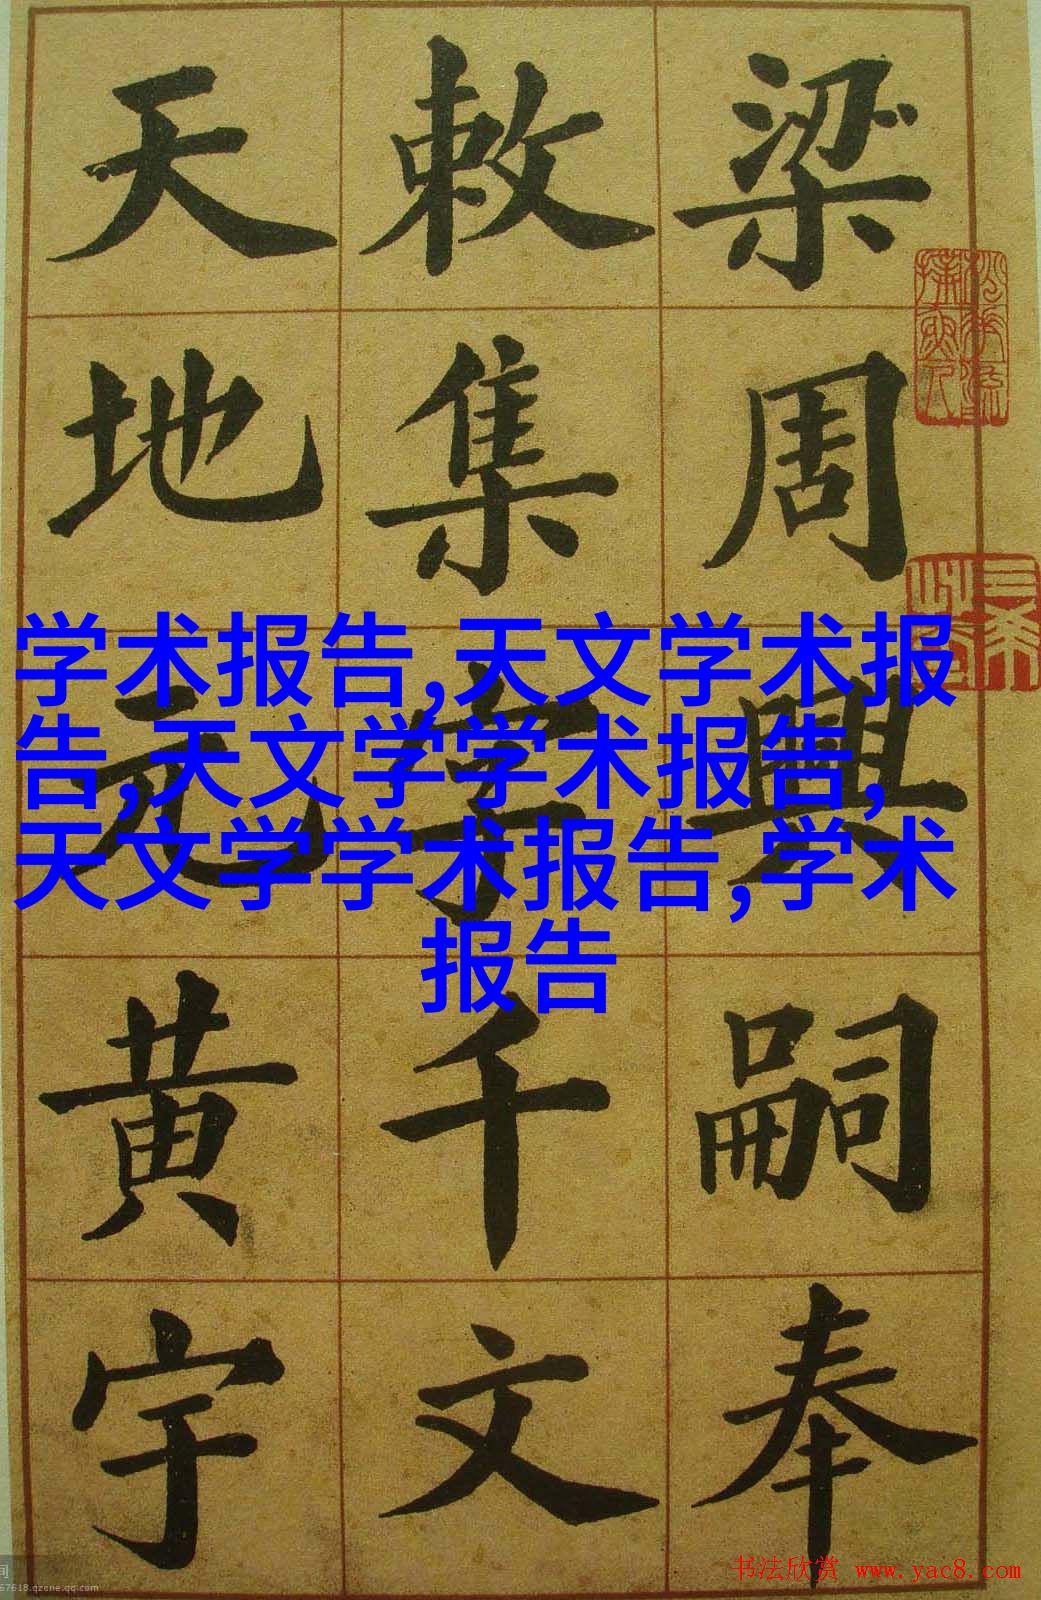 梁周興嗣奉
敕集字千文
天地元黄宇
学术报告,天文学术报
告,天文学学术报告,
天文学学术报告,学术
报告
书法欣赏 www.yac8.com
67618.qzone.qq.com